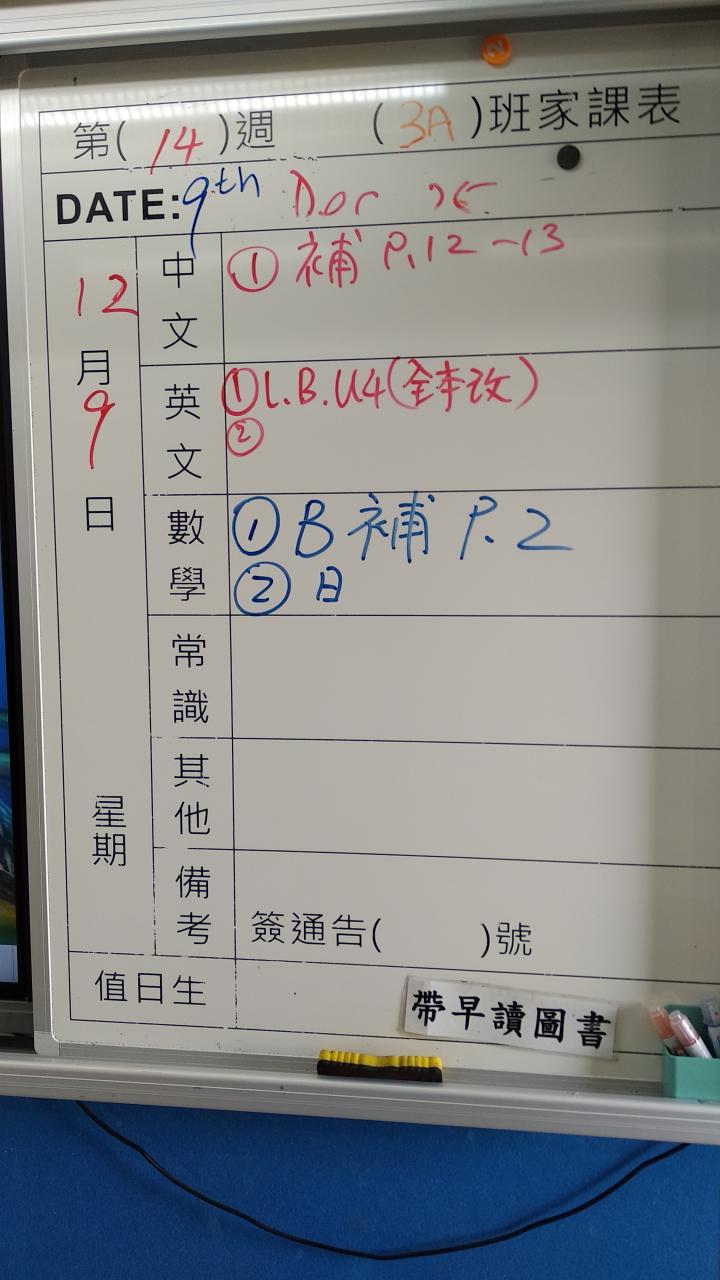 第( 14 )週 ( 3A )班家課表
DATE: 9th Dec
12月9日
星期
中文
① 補 P.12-13
英文
① L.B. U4(全本改)
②
數學
① B 補 P.2
② 日
常識
其他
備考
簽通告( )號
值日生
帶早讀圖書